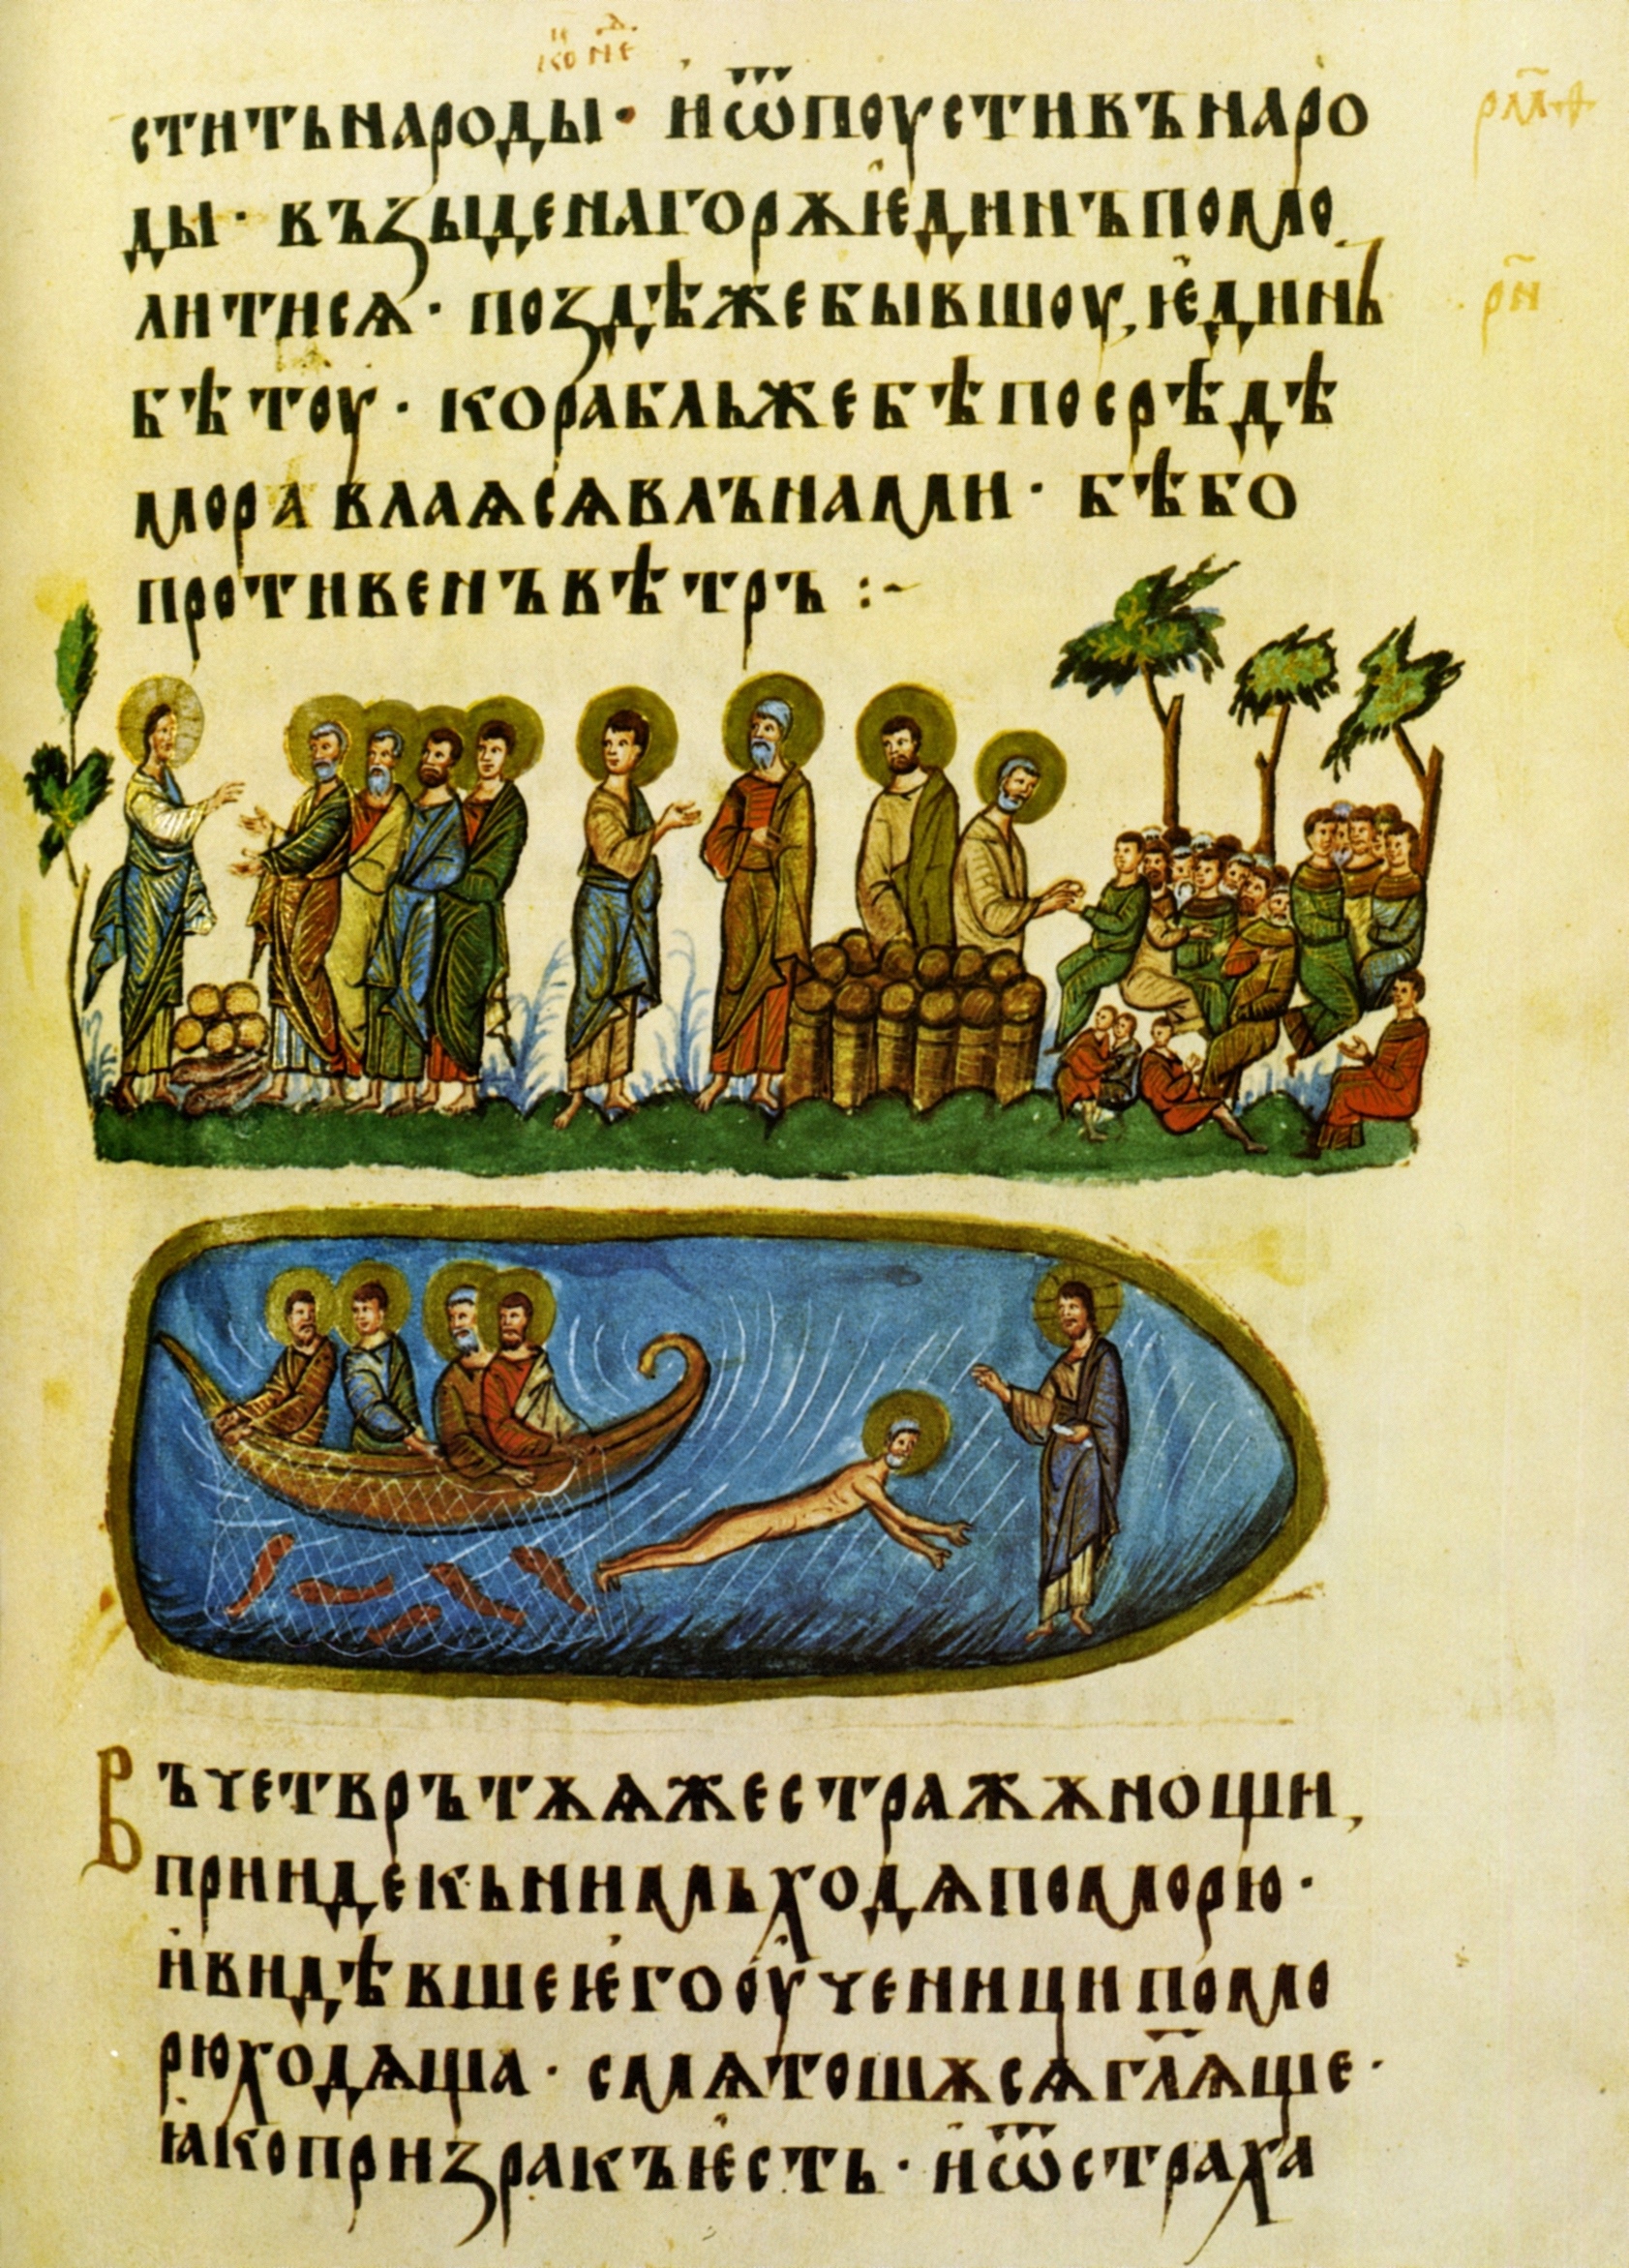 коне
стить народы · и ѿпоустивъ наро
ды · възыде на горѫ ѥдинъ помо
литисѧ · поздѣ же бывшоу, ѥдинь
бѣ тоу · корабль же бѣ посрѣдѣ
мора влаѧсѧ влънами · бѣ бо
противенъ вѣтръ :~
рн҃
Въ четврътѫѧ же стражѫ нощи,
прииде кь нимь ходѧ по морю ·
и видѣвше ѥго оученици по мо
рю ходѧща · смѧтошѫсѧ гл҃ѧще ·
ꙗко призракъ ѥсть · и ѿ страха